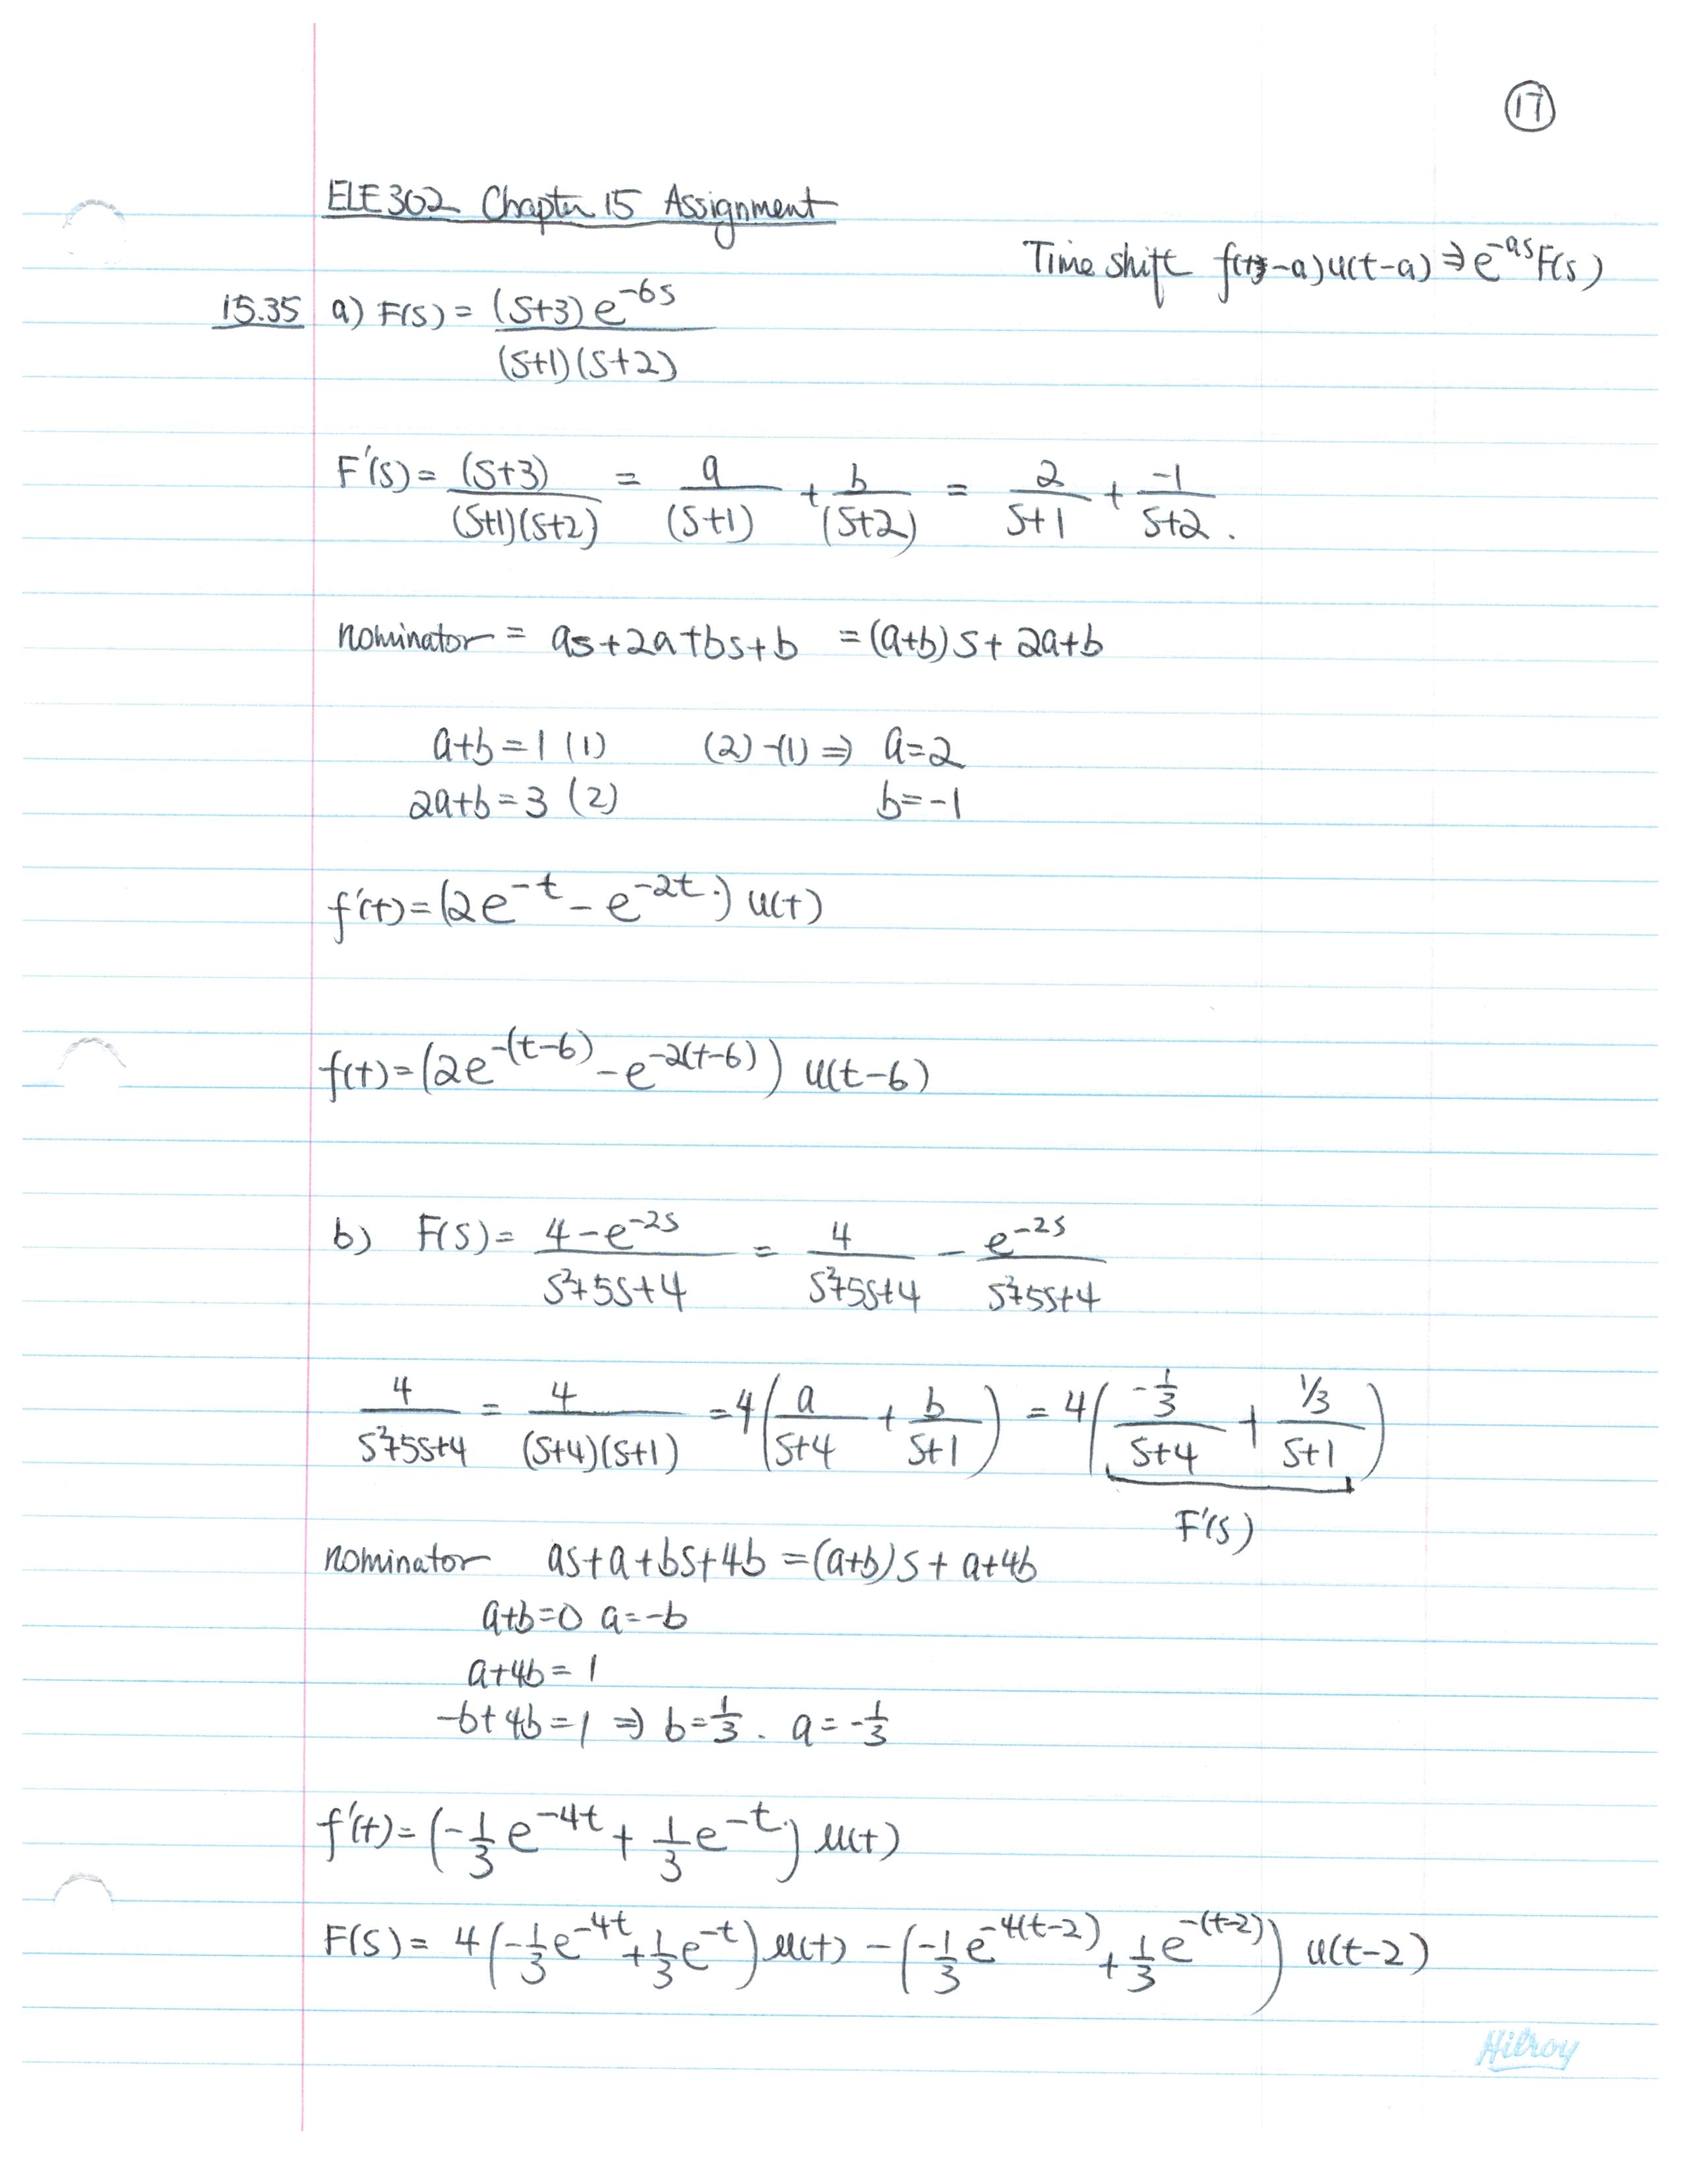 17
ELE302 Chapter 15 Assignment
Time shift f(t-a)u(t-a) ⇒ e^{-as}F(s)
15.35 a) F(s) = (s+3)e^{-6s} / (s+1)(s+2)
F'(s) = (s+3) / (s+1)(s+2) = a/(s+1) + b/(s+2) = 2/s+1 + -1/s+2 .
nominator = as+2a+bs+b = (a+b)s+2a+b
a+b=1 (1) (2)-(1) ⇒ a=2
2a+b=3 (2) b=-1
f'(t) = (2e^{-t} - e^{-2t}.) u(t)
f(t) = (2e^{-(t-6)} - e^{-2(t-6)}) u(t-6)
b) F(s) = 4-e^{-2s} / s²+5s+4 = 4 / s²+5s+4 - e^{-2s} / s²+5s+4
4 / s²+5s+4 = 4 / (s+4)(s+1) = 4(a/s+4 + b/s+1) = 4(-1/3 / s+4 + 1/3 / s+1)
F'(s)
nominator as+a+bs+4b = (a+b)s+a+4b
a+b=0 a=-b
a+4b=1
-b+4b=1 ⇒ b=1/3 . a=-1/3
f'(t) = (-1/3 e^{-4t} + 1/3 e^{-t}.) u(t)
F(s) = 4(-1/3 e^{-4t} + 1/3 e^{-t}) u(t) - (-1/3 e^{-4(t-2)} + 1/3 e^{-(t-2)}) u(t-2)
Hilroy